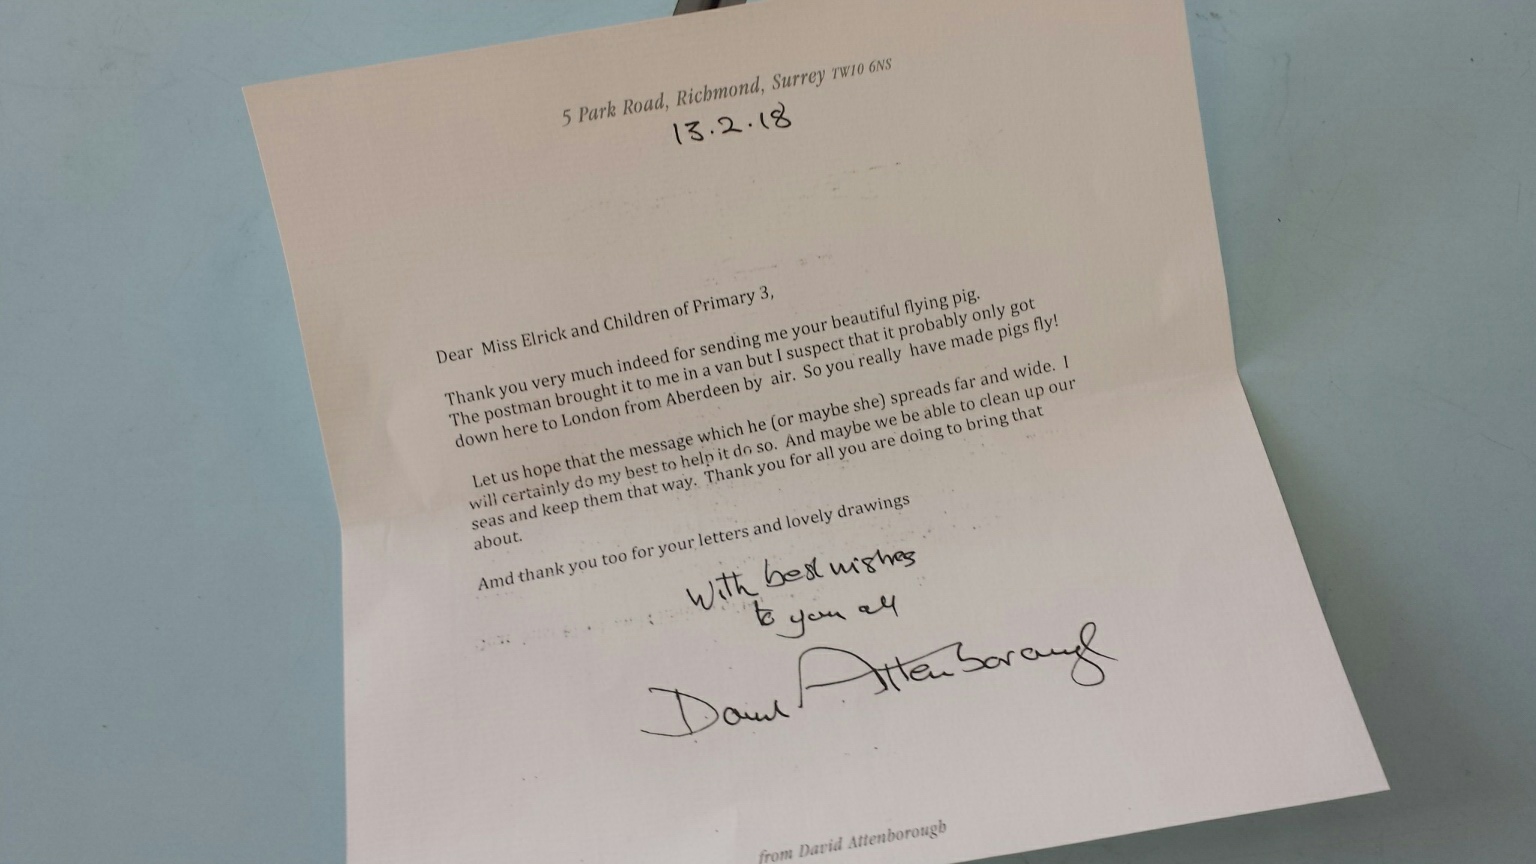 5 Park Road, Richmond, Surrey TW10 6NS
13.2.18
Dear Miss Elrick and Children of Primary 3,
Thank you very much indeed for sending me your beautiful flying pig.
The postman brought it to me in a van but I suspect that it probably only got
down here to London from Aberdeen by air. So you really have made pigs fly!
Let us hope that the message which he (or maybe she) spreads far and wide. I
will certainly do my best to help it do so. And maybe we be able to clean up our
seas and keep them that way. Thank you for all you are doing to bring that
about.
Amd thank you too for your letters and lovely drawings
With best wishes
to you all
David Attenborough
from David Attenborough